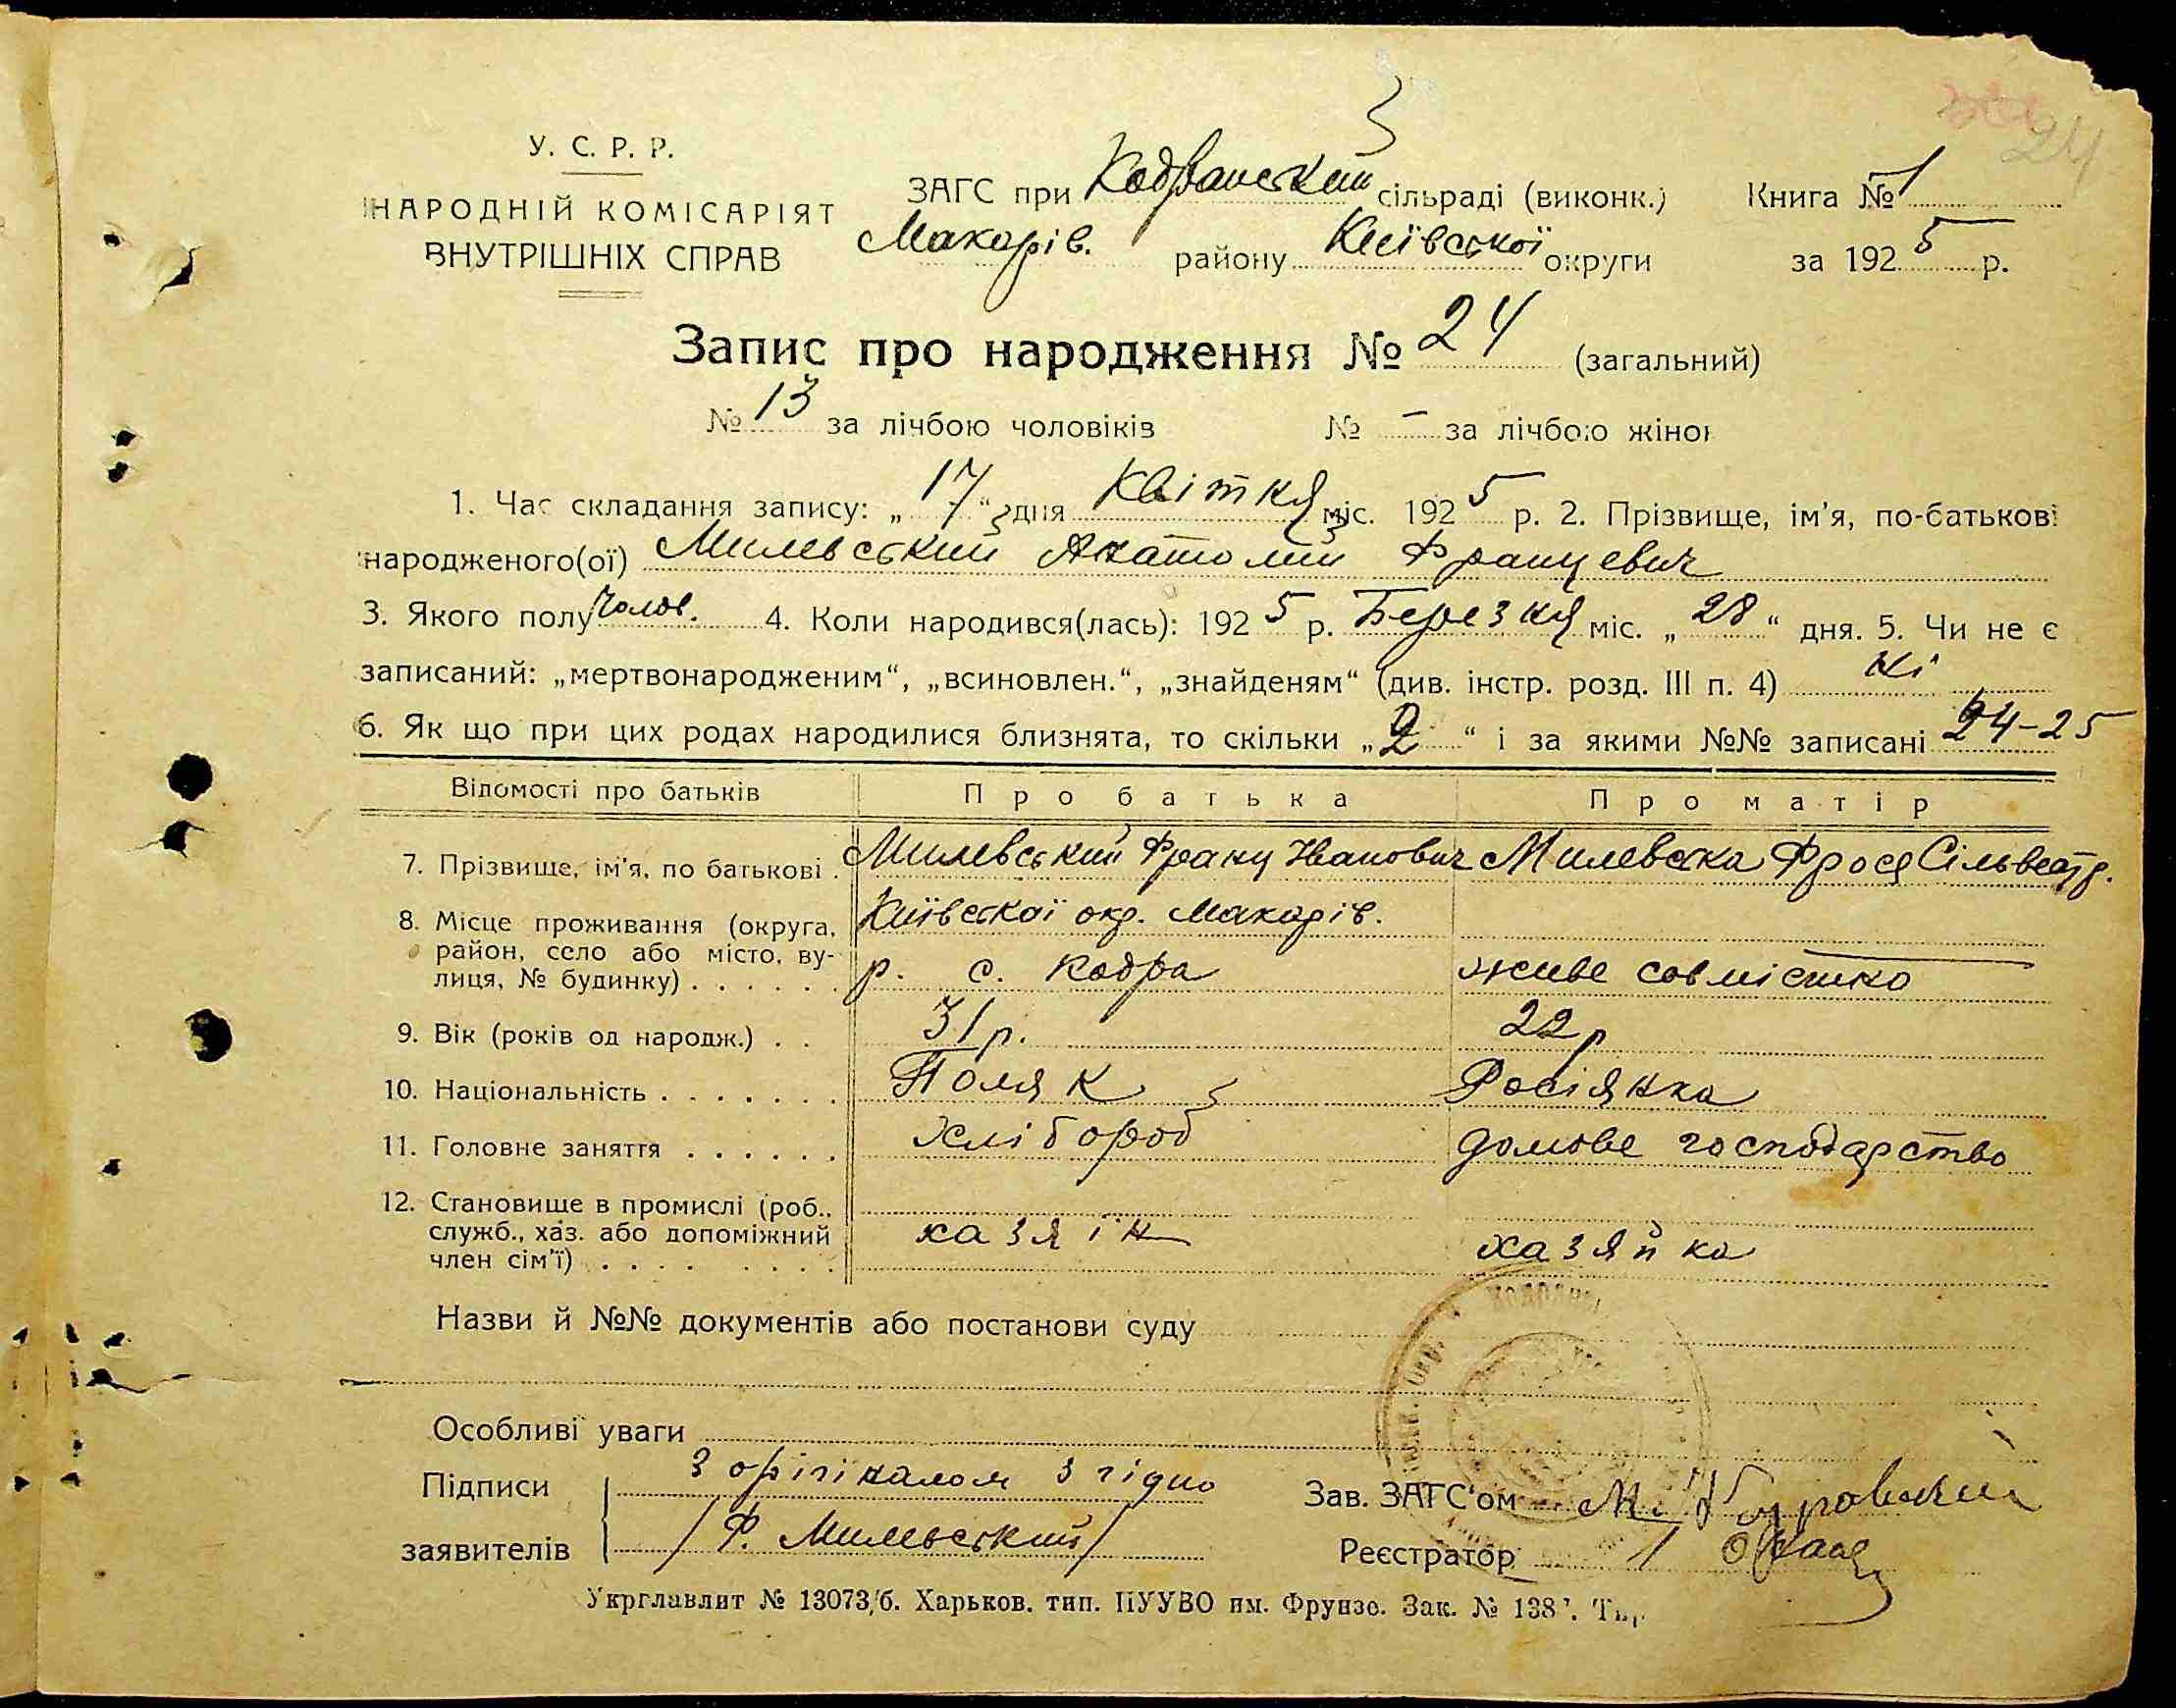 24
У. С. Р. Р.
НАРОДНІЙ КОМІСАРІЯТ
ВНУТРІШНІХ СПРАВ
ЗАГС при Кодранский сільраді (виконк.) Книга № 1
Макарів. району Київської округи за 1925 р.
Запис про народження № 24 (загальний)
№ 13 за лічбою чоловіків № – за лічбою жінок
1. Час складання запису: „17“ дня Квітня міс. 1925 р. 2. Прізвище, ім'я, по-батькові
народженого(ої) Милевський Анатолій Францевич
3. Якого полу Чолов. 4. Коли народився(лась): 1925 р. Березня міс. „28“ дня. 5. Чи не є
записаний: „мертвонародженим“, „всиновлен.“, „знайденям“ (див. інстр. розд. III п. 4) Ні
6. Як що при цих родах народилися близнята, то скільки „2“ і за якими №№ записані 24-25
Відомості про батьків Про батька Про матір
7. Прізвище, ім'я, по батькові . Милевський Франц Иванович Милевска Фрося Сільвестр.
8. Місце проживання (округа, Київскої окр. Макарів.
район, село або місто, ву-
лиця, № будинку) . . . . . . р. с. Кодра живе совмістно
9. Вік (років од народж.) . . 31 р. 22 р
10. Національність . . . . . . . Поляк Росіянка
11. Головне заняття . . . . . . хлібороб домове господарство
12. Становище в промислі (роб.,
служб., хаз. або допоміжний хазяін хазяйка
член сім'ї) . . . . . . . .
Назви й №№ документів або постанови суду
Особливі уваги
Підписи З орігіналом згідно Зав. ЗАГС'ом М.
заявителів /Ф. Милевський/ Реєстратор
Укрглавлит № 13073/б. Харьков. тип. ПУУВО им. Фрунзе. Зак. № 138